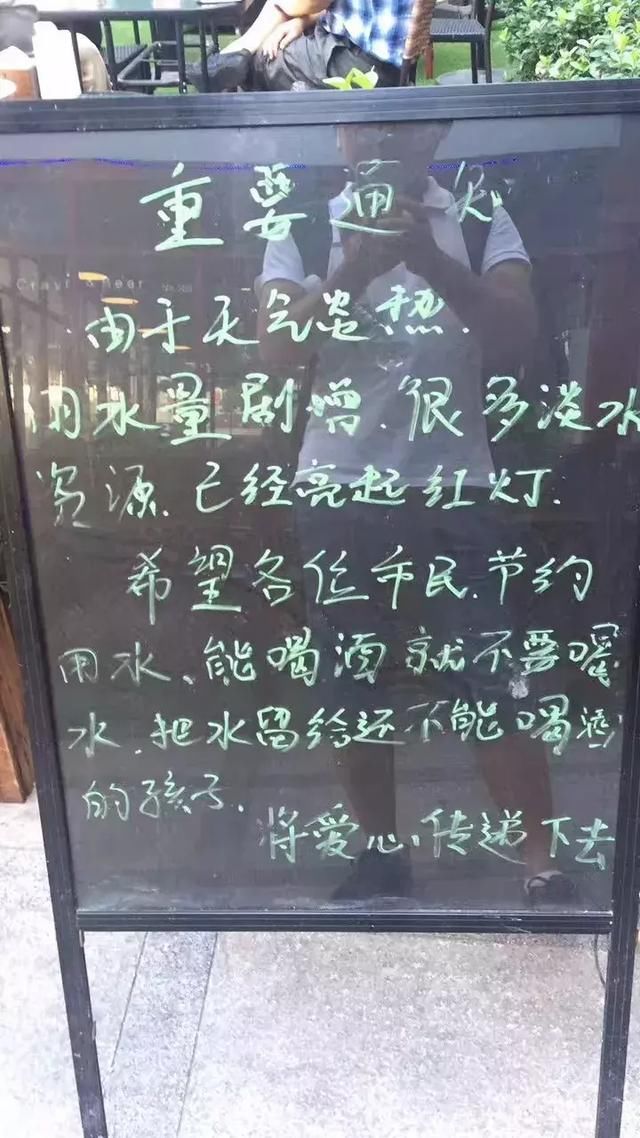 重要通知
Craft & Beer
由于天气炎热.
用水量剧增.很多淡水
资源.已经亮起红灯.
希望各位市民.节约
用水、能喝酒就不要喝
水.把水留给还不能喝酒
的孩子.
将爱心传递下去